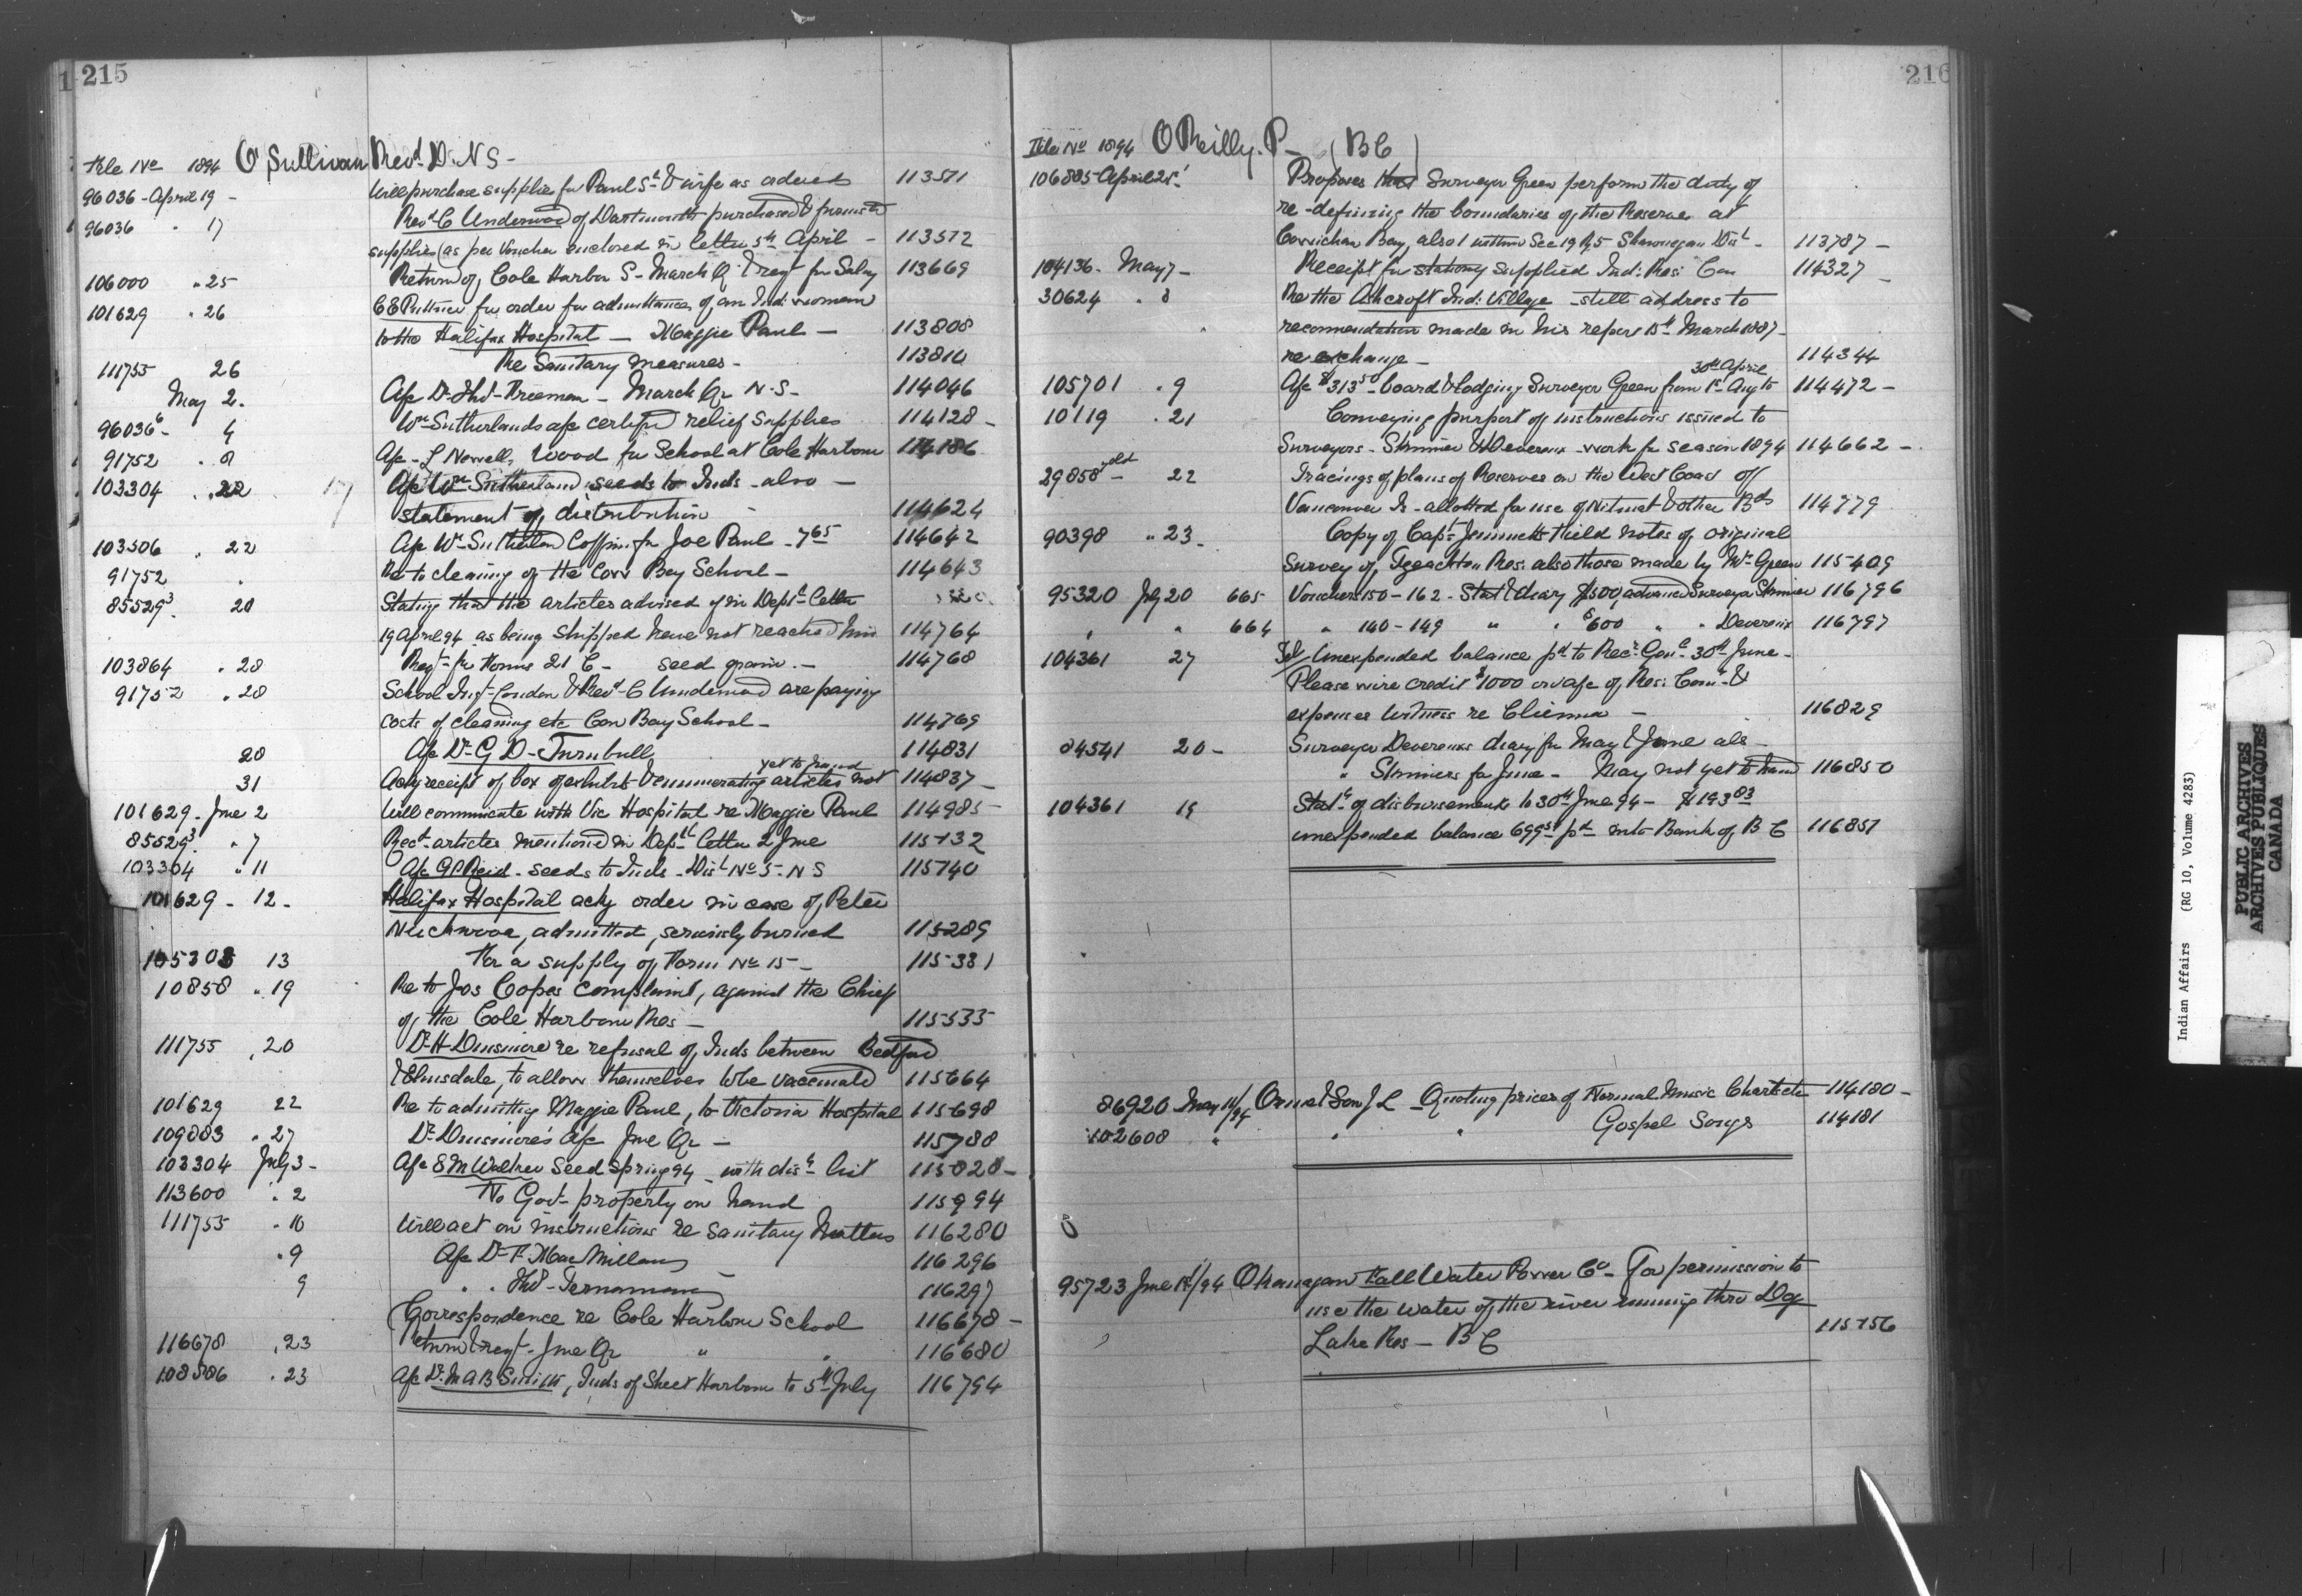 215
File No 1894 O'Sullivan Revd D. N S -
96036 - April 19 - Will purchase supplies for Paul St & wife as ordered 113571
96036 " 17 Revd C Underwood of Dartmouth purchased & furnished
supplies (as per Voucher enclosed in letter 5th April - 113572
106000 " 25 Return of Cole Harbor S - March Qr & reqt for Salary 113669
101629 " 26 for order for admittance of an Ind: woman
to the Halifax Hospital - Maggie Paul - 113808
111755 26 Re Sanitary measures - 113810
May 2. A/c Dr Freeman - March Qr N.S. - 114046
96036 6 - 4 Wm Sutherlands a/c certified relief Supplies 114128 -
91752 " 8 A/c - L Newell, Wood for School at Cole Harbour 114186
103304 " 22 A/c Wm Sutherland seeds to Inds - also -
statement of distribution - 114624
103506 " 22 A/c Wm Sutherland Coffin for Joe Paul - 7 65 114642
91752 " Re to cleaning of the Cow Bay School - 114643
85529 3 . 28 Stating that the articles advised of in Deptl Letter
19 April 94 as being shipped have not reached him 114764
103864 " 28 Reqt for Forms 21 C - seed grain. - 114768
91752 " 28 School Inspt Condon & Revd C Underwood are paying
costs of cleaning etc Cow Bay School - 114769
28 A/c Dr G D - Turnbull 114831
yet to hand
31 Ackg receipt of box of exhibits & enumerating articles not 114837 -
101629 - June 2 Will communicate with Vic Hospital re Maggie Paul 114985 -
85529 3 . " 7 Recd articles mentioned in Deptl letter 2 June 115132
103304 " 11 A/c G P Reid - seeds to Inds - Dist No 5 - N S 115140
101629 - 12 - Halifax Hospital ackg order in case of Peter
admitted, seriously burned 115289
105308 13 For a supply of Form No 15 - 115381
10858 " 19 Re to Jos Copes complaint, against the Chief
of the Cole Harbour Res - 115535
111755 " 20 Dr H Dinsmore re refusal of Inds between Bedford
& Elmsdale, to allow themselves to be vaccinated 115664
101629 22 Re to admitting Maggie Paul, to Victoria Hospital 115698
109883 " 27 Dr Dinsmore's A/c June Qr - 115788
103304 July 3 - A/c S M Walker Seed Spring 94 - with dist list 115828 -
113600 " 2 No Govt property on hand 115994
111755 " 10 Will act on instructions re Sanitary Matters 116280
" 9 A/c Dr F. MacMillan 116296
9 " " 116297
Correspondence re Cole Harbour School 116678 -
116678 " 23 Return & reqt - June Qr " " 116680
108586 " 23 A/c Dr M A B Smith, Inds of Sheet Harbour to 5th July 116794
216
File No 1894 O'Reilly. P - (B C)
106885 - April 25 Proposes that Surveyor Green perform the duty of
re-defining the boundaries of the Reserve at
Cowichan Bay, also 1 within Sec 19 R 5 Shawnigan Dist - 113787 -
104136 - May 7 - Receipt for stationery supplied Ind: Res: Com 114327
30624 " 8 Re the Ashcroft Ind: Village - still address to
recommendation made in his report 15th March 1887 -
re exchange - 114344
30th April
105701 " 9 A/c $313 50 - board & lodging Surveyor Green from 1st Aug to 114472 -
10119 " 21 Conveying purport of instructions issued to
Surveyors - Skinner & Devereux - work for season 1894 114662 -
29858 - old 22 Tracings of plans of Reserves on the West Coast of
Vancouver Is - allotted for use of Nitinat & other Bds 114779
90398 " 23 - Copy of Capt Jemmetts Field notes of original
survey of Tzeachten Res: also those made by Mr Green 115409
95320 July 20 665 Vouchers 150 - 162 - Stat & diary $500 advanced Surveyor Skinner 116796
" " 664 " 140 - 149 " " $600 " " Devereux 116797
104361 27 Tel / Unexpended balance pd to Recr Genl 30th June -
Please wire credit $1000 on a/c of Res: Comr &
expenses witness re - 116829
84541 20 - Surveyor Devereux diary for May & June also -
" Skinners for June - May not yet to hand 116850
104361 19 Statt of disbursements to 30th June 94 - $193 83
unexpended balance pd into Bank of B C 116851
86920 May 11/94 Orme & Son J L - Quoting prices of Normal Music Charts etc 114180 -
102608 " " " Gospel Songs 114181
95723 June 1/94 Okanagan Fall Water Power Co - For permission to
use the water of the river running thro Dog
Lake Res - B C 115156
Indian Affairs (RG 10, Volume 4283)
PUBLIC ARCHIVES
ARCHIVES PUBLIQUES
CANADA